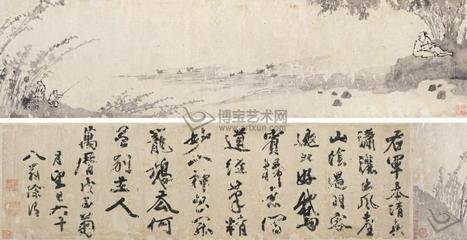 博宝艺术网
右軍本清真
瀟灑出風塵
山陰遇羽客
要此好鵞
賓掃素寫
道經筆精
妙入神書罷
籠鵞去何
曾別主人
萬曆戊子菊
月望日六十
八翁徐渭